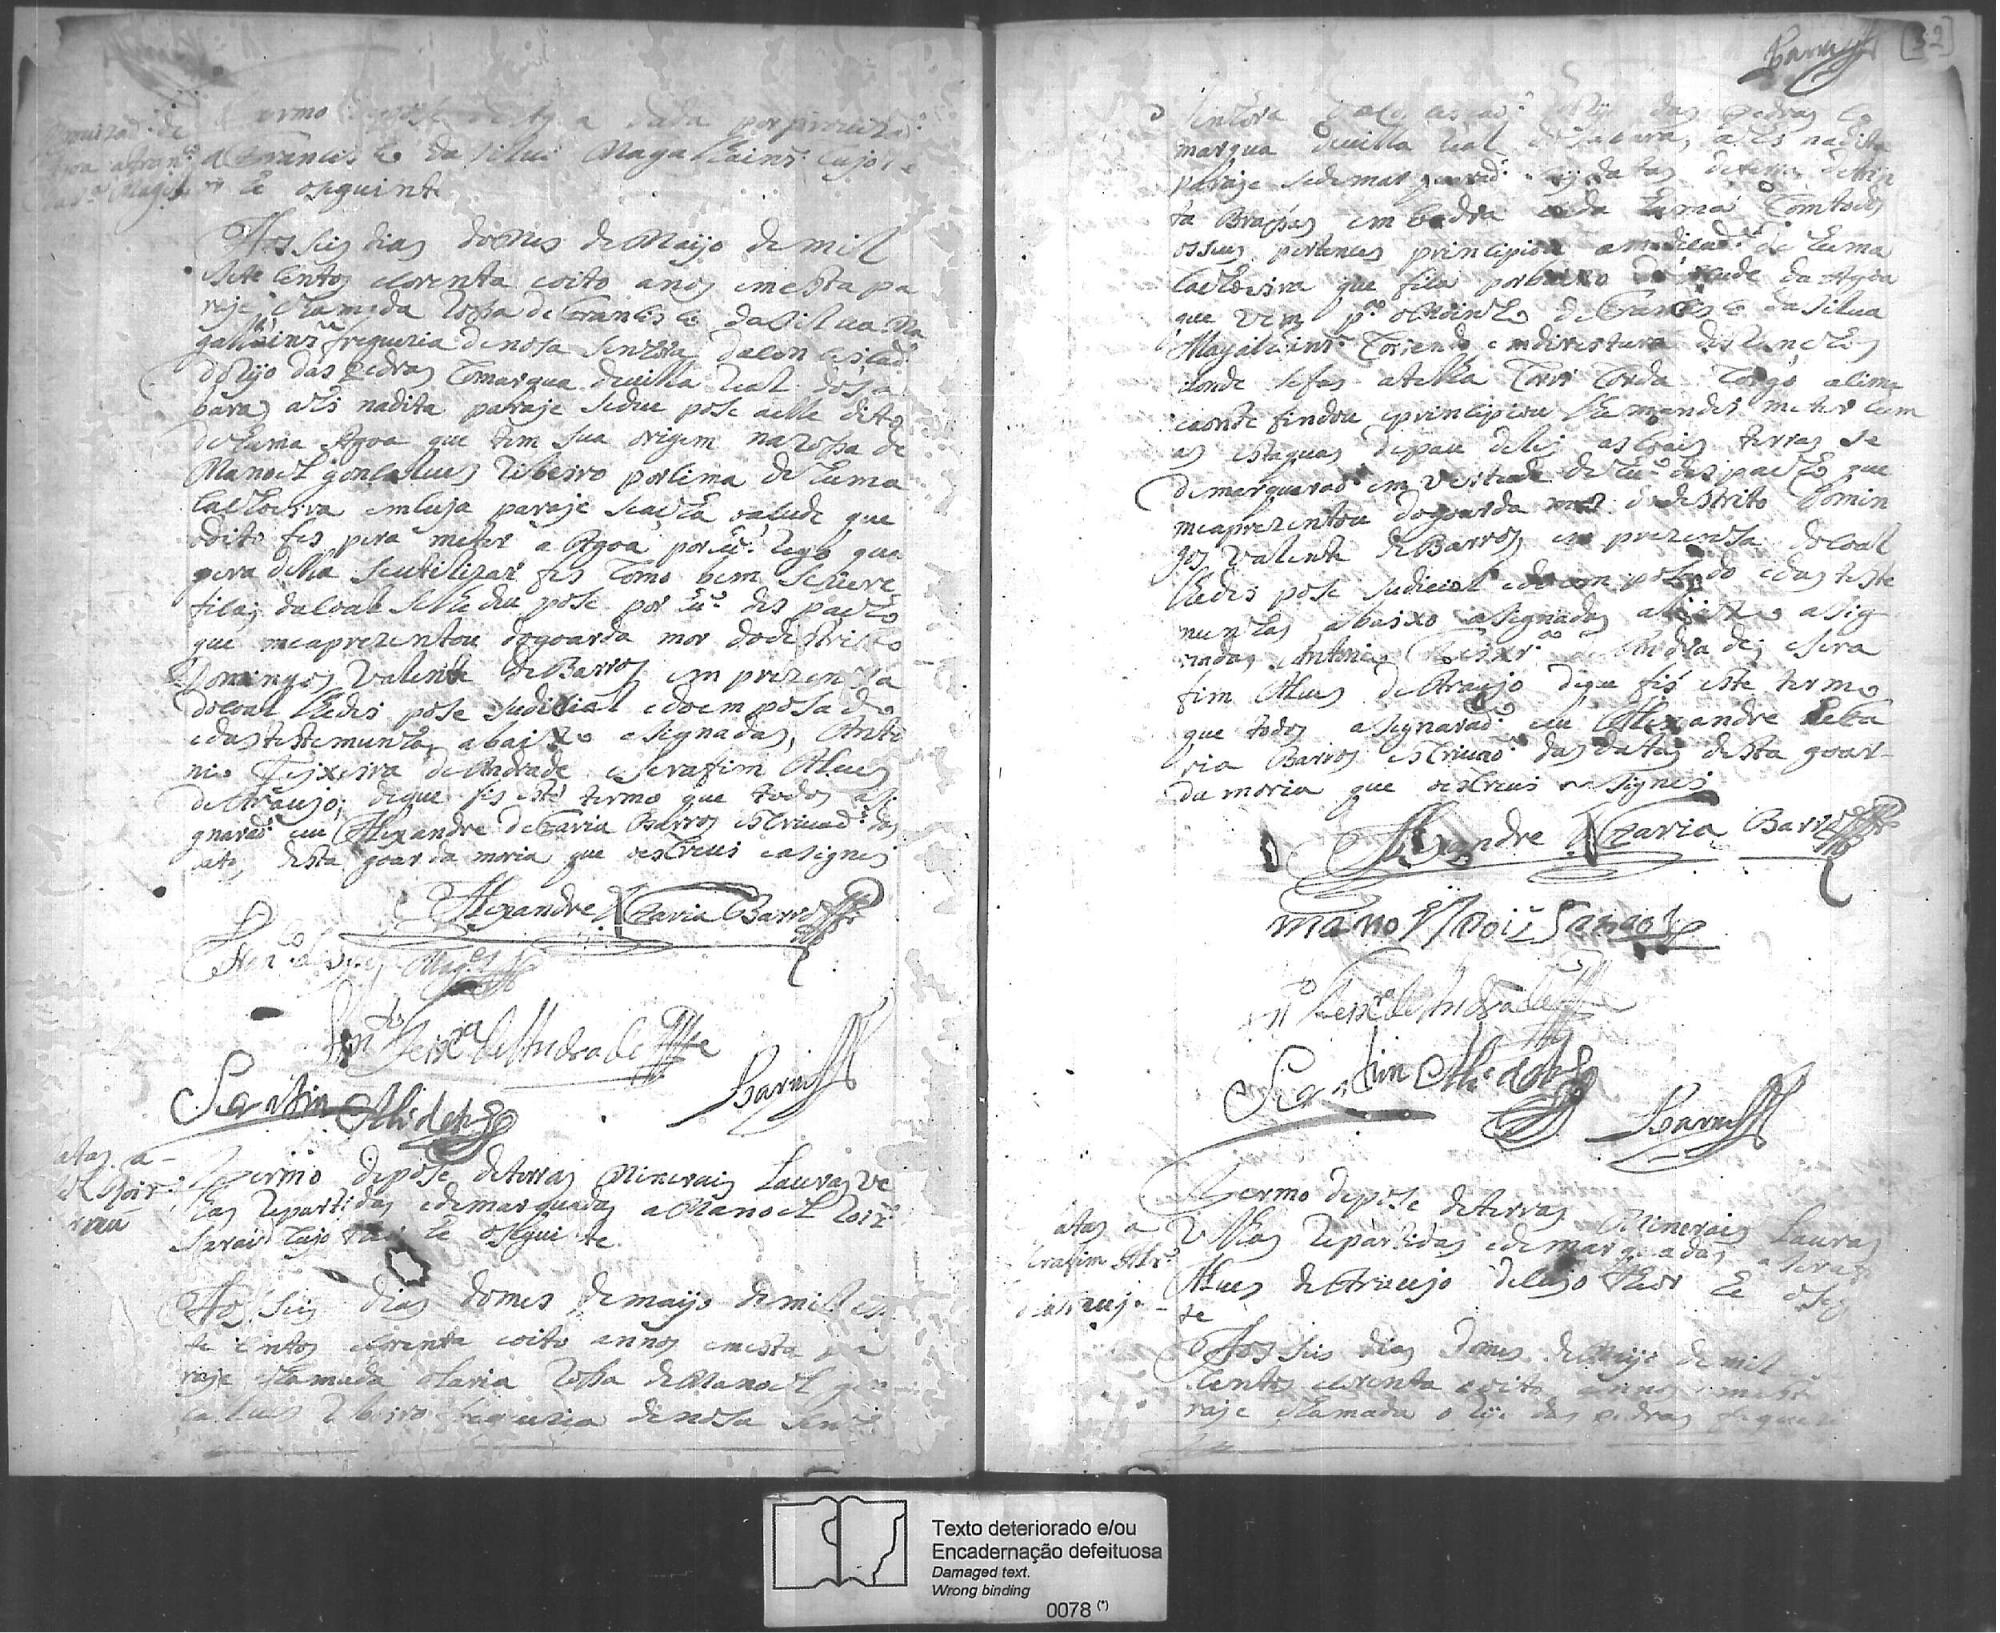 ermo de pose de Agoa dada por provizaõ
a Francisco da Silva Magalhains Cujo te
or he oseguinte
Aos seis dias do mes de Mayo de mil
sete centos e corenta e oito anos em esta pa
raje chamada Rossa de Francisco da Silva Ma
galhains freguezia de nosa senhora da Conceicaõ
do Rijo das Pedras Comarqua de villa Real do Sa
bara, a hi na dita paraje se deu pose a elle dito
de huma Agoa que tem sua origem na Rossa de
Manoel gonsalves Ribeiro por sima de huma
Cachoeira em cuja paraje se acha o asude que
o dito fes pera meter a Agoa por seu Rego que
pera della se utilizar fes Como bem se veri
fica; da coal se lhe deu pose por seu despacho
que me aprezentou do goarda mor do destrito
Domingos Valente de Barros em prezensa
do coal lhe dei pose Judicial e do em posado
e das testemunhas abaixo asignadas, Anto
nio Teixeira de Andrade e Serafim Alves
de Araujo; de que fis este termo que todos asi
gnaraõ eu Alexandre de Faria Barros escrivaõ das
datas desta goarda moria que oescrevi easignei
Alexandre de Faria Barros
Fran.co Magés
Ant.o Teix.ra de Andrade
Barros
Serafim Alz de Ar.o
Termo de pose de terras Minerais Lavras ve
lhas Repartidas e demarquadas a Manoel Roiz
Sarai Cujo he oseguinte
Aos seis dias do mes de mayo de mil e se
te centos e corenta e oito annos em esta pa
raje chamada olaria Rossa de Manoel gon
calves Ribeiro freguezia de nosa senho
Barros
[32]
senhora da Conceicaõ do Rijo das Pedras Co
marqua de villa Real do Sabara, a hi na dita
paraje se demarquaraõ datas de terra de trin
ta Brassas em coadra cada huma Com todos
os seus pertences principiou a medicaõ de huma
Cachoeira que fica por baixo do asude da Agoa
que vem p.a o de Francisco da Silva
Magalhains Correndo em direitura
donde se fas a Corda
e aonde findou e principiou lhe mandei meter
as estaquas de pau de lei as coais terras se
demarquaraõ em vertude de seu despacho que
me aprezentou do goarda mor do destrito Domin
gos Valente de Barros em prezensa do coal
lhe dei pose Judicial e do em posado e das teste
munhas abaixo asignadas abaixo asig
nadas Antonio Teixr.a de Andrade e Sera
fim Alves de Araujo de que fis este termo
que todos asignaraõ eu Alexandre de Fa
ria Barros escrivaõ das datas desta goar
da moria que oescrevi easignei
Alexandre de Faria Barros
Manoel Roiz
Teix.ra de Andrade
Serafim Alz de Ar.o
Barros
Termo de pose de terras Minerais Lavras
velhas Repartidas e demarquadas a Seraf
Alves de Araujo de Cujo theor he oseg
te
datas a
Serafim Alz
de Araujo
Aos seis dias do mes de Mayo de mil
centos e corenta e oito annos em esta
raje chamada o Rijo das pedras fregue
Texto deteriorado e/ou
Encadernação defeituosa
Damaged text.
Wrong binding
0078 (*)